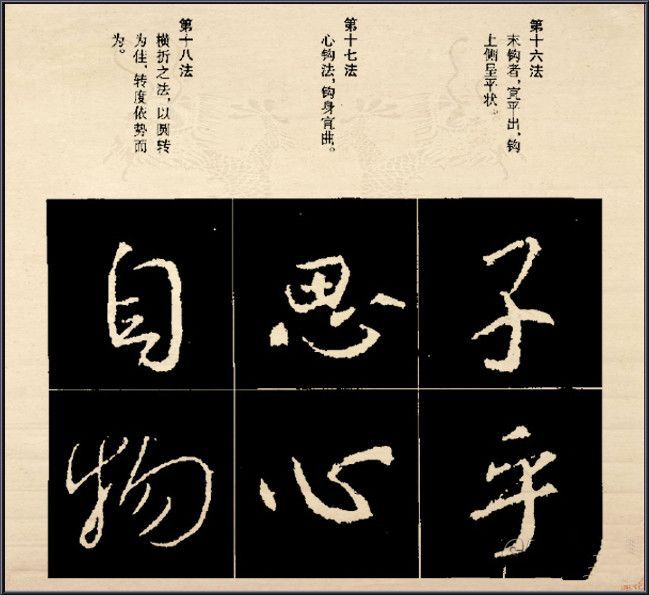 第十六法
末钩者，宜平出，钩
上侧呈平状。
第十七法
心钩法，钩身宜曲。
第十八法
横折之法，以圆转
为佳，转度依势而
为。
子
乎
思
心
自
物